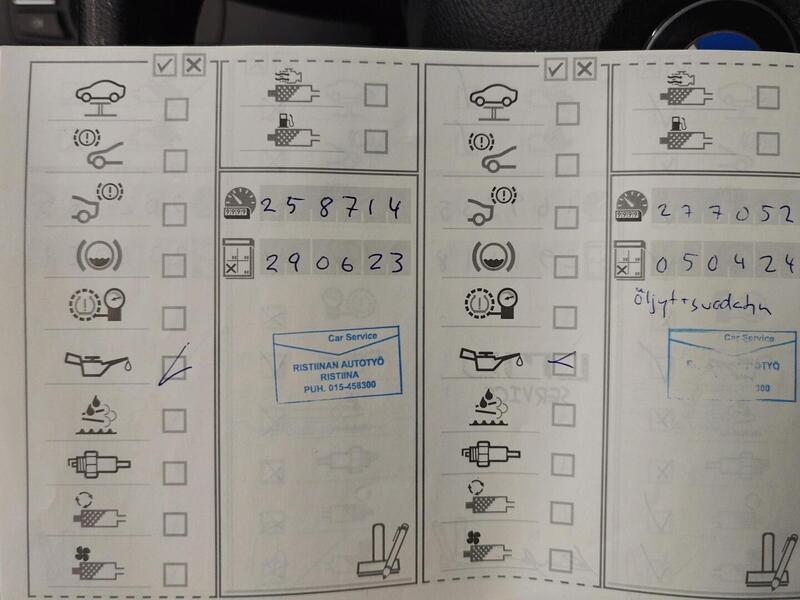 258714
290623
Car Service
RISTIINAN AUTOTYÖ
RISTIINA
PUH. 015-458300
277052
050424
Öljyt+suodatin
Car Service